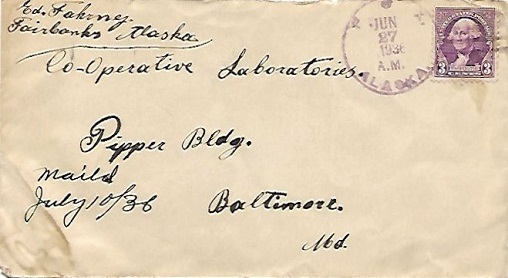 Ed. Fahrney
Fairbanks Alaska
JUN
27
1936
A.M.
ALASKA
3 3
Co-Operative Laboratories.
Pipper Bldg.
maild
July 10/36
Baltimore.
Md.